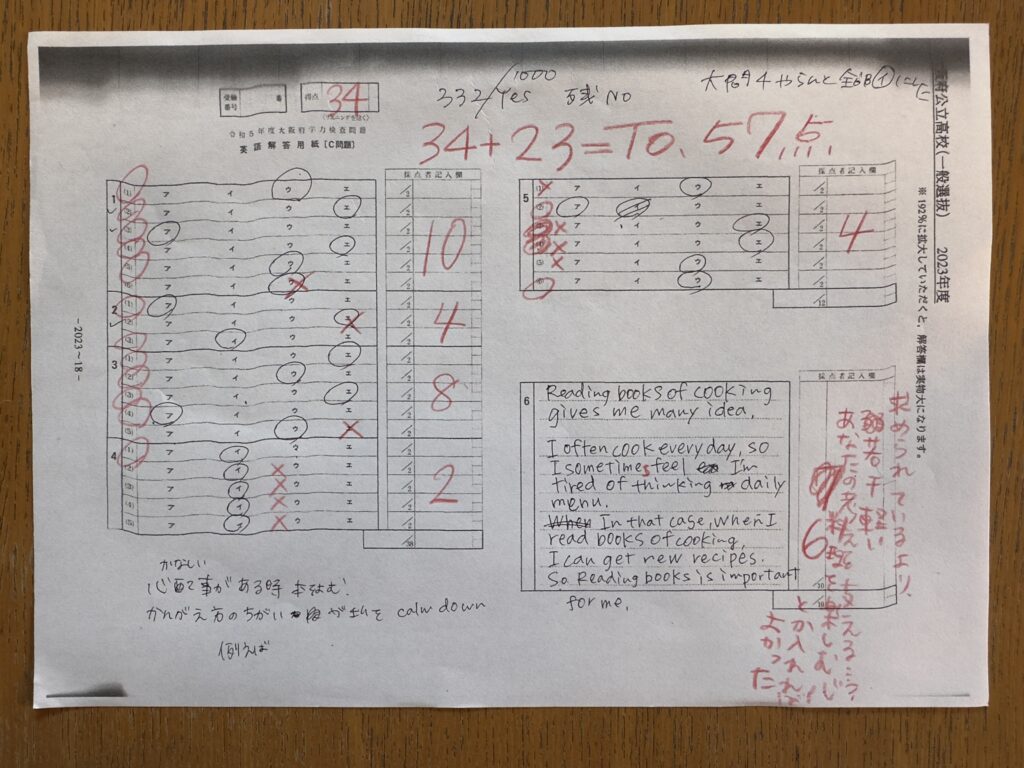 受験番号 番
得点 34
(リスニングを除く)
332/1000 Yes 残 NO
大問4やらんと全部イにした
令和5年度大阪府学力検査問題
英語解答用紙〔C問題〕
34+23=TO.57点
府公立高校(一般選抜) 2023年度
※192%に拡大していただくと、解答欄は実物大になります。
採点者記入欄
1
(1) ア イ ウ エ /2
(2) ア イ ウ エ /2
(3) ア イ ウ エ /2
(4) ア イ ウ エ /2
(5) ア イ ウ エ /2
(6) ア イ ウ エ /2
10
2
(1) ア イ ウ エ /2
(2) ア イ ウ エ /2
(3) ア イ ウ エ /2
4
3
(1) ア イ ウ エ /2
(2) ア イ ウ エ /2
(3) ア イ ウ エ /2
(4) ア イ ウ エ /2
(5) ア イ ウ エ /2
8
4
(1) ア イ ウ エ /2
(2) ア イ ウ エ /2
(3) ア イ ウ エ /2
(4) ア イ ウ エ /2
(5) ア イ ウ エ /2
2
/38
採点者記入欄
5
(1) ア イ ウ エ /2
(2) ア イ ウ エ /2
(3) ア イ ウ エ /2
(4) ア イ ウ エ /2
(5) ア イ ウ エ /2
(6) ア イ ウ エ /2
4
/12
採点者記入欄
6
Reading books of cooking
gives me many idea.
I often cook everyday, so
I sometimes feel I'm
tired of thinking daily
menu.
When In that case, when I
read books of cooking,
I can get new recipes.
So Reading books is important
for me.
6
/10
/10
求められているより、
若干軽い
あなたの考えを支える…?
料理を楽しむ
とか入れれば
よかった
-2023~18-
かなしい
事がある時 本をよむ!
かんがえ方のちがい が私を calm down
例えば